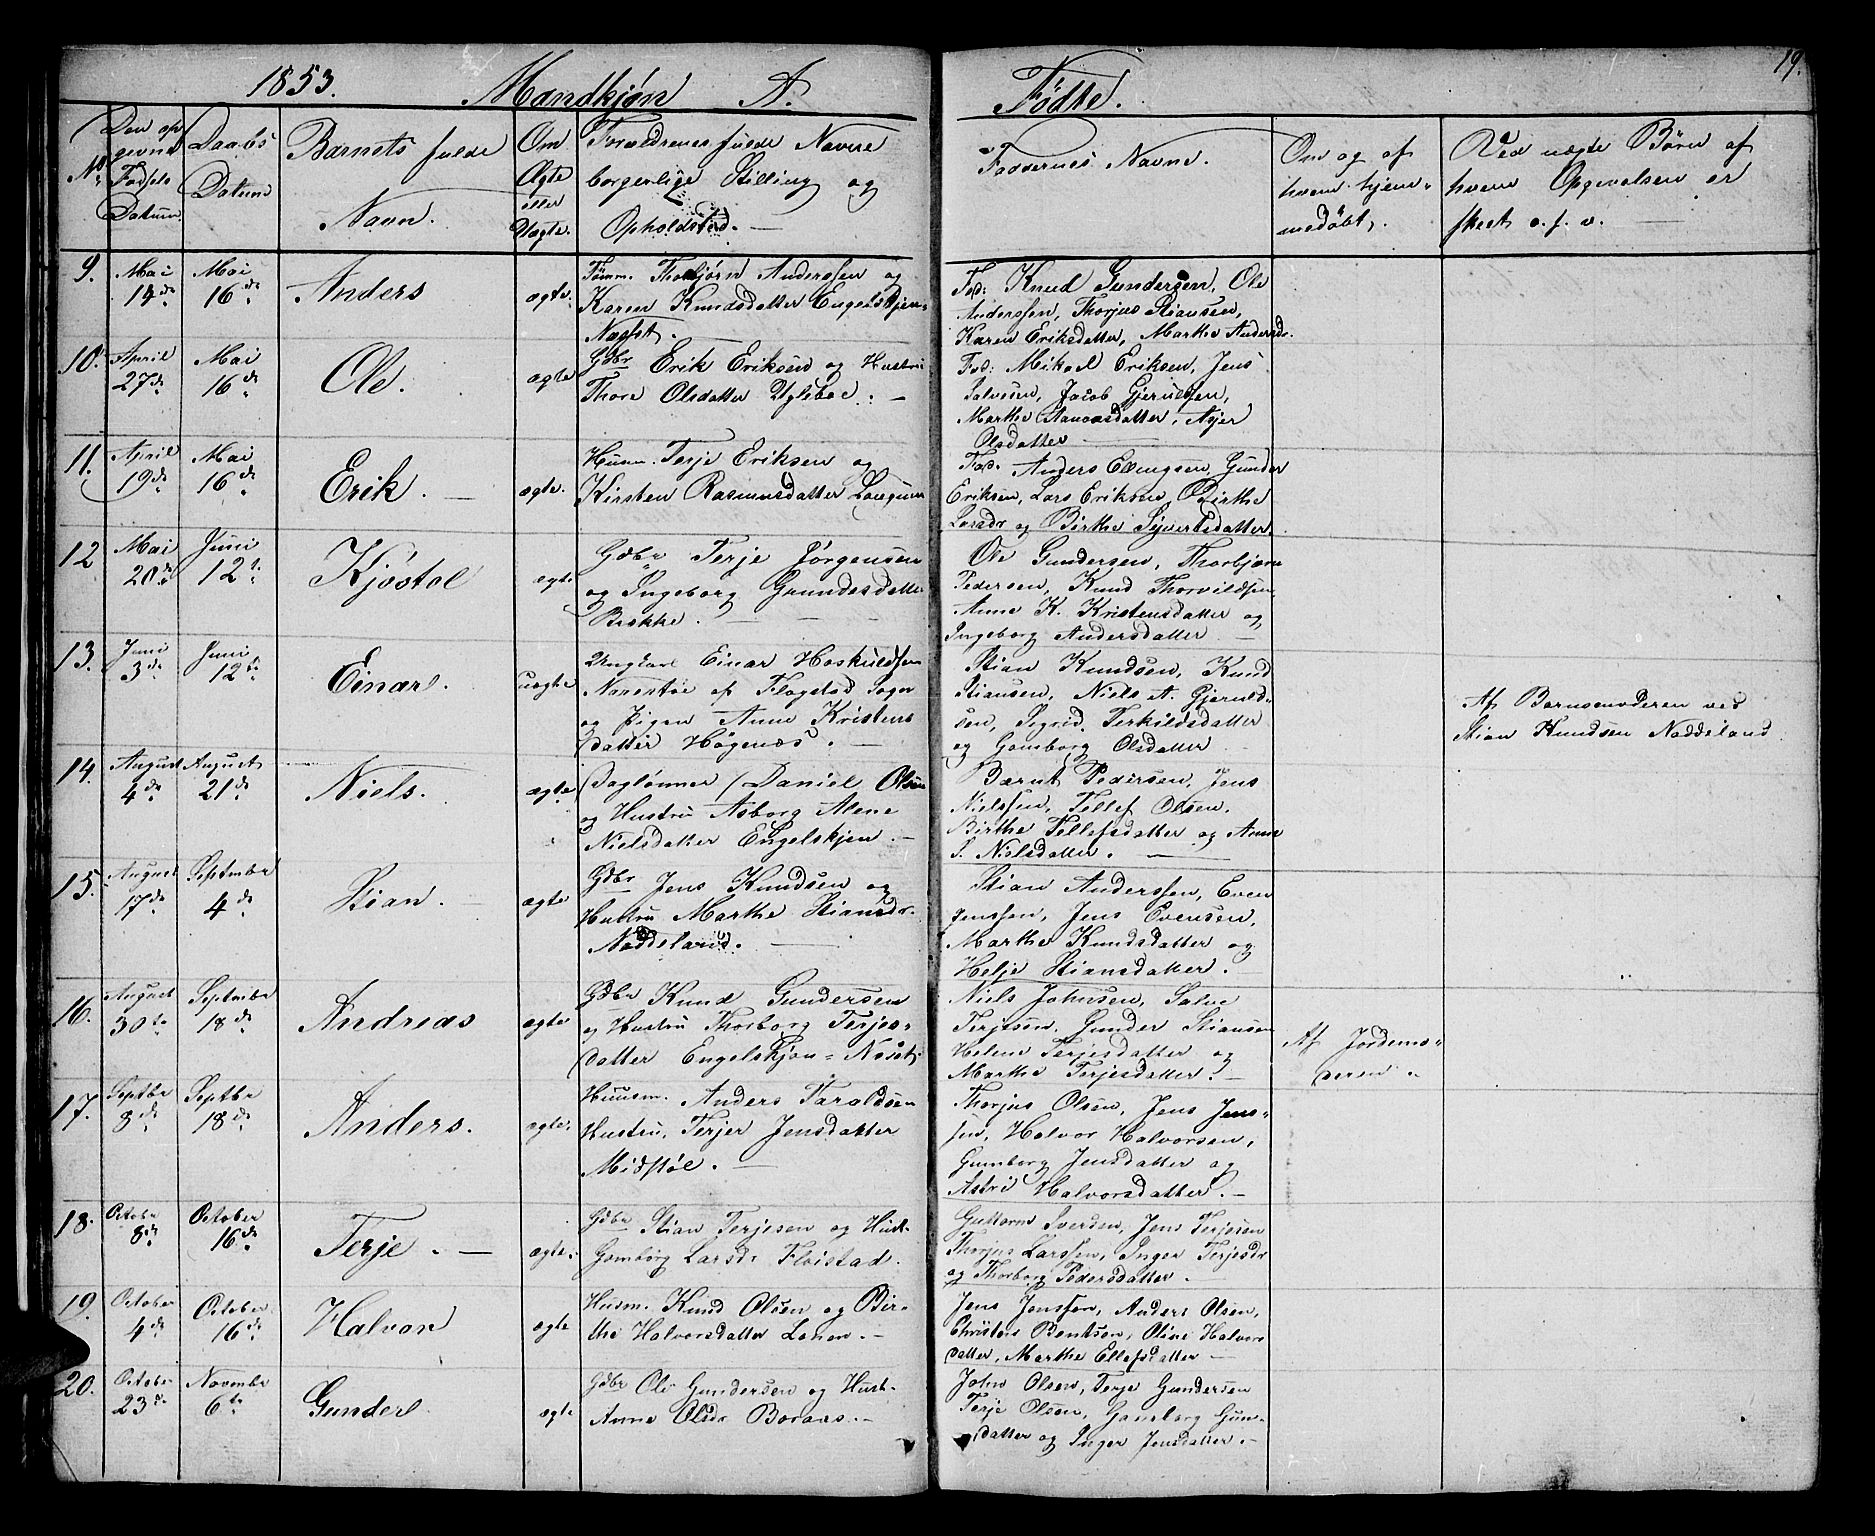 1853. Mandkjøn A. Fødte. 19.
No
Den op
givne
Fødsels
Datum.
Daabs
Datum
Barnets fulde
Navn.
Om
Ægte
eller
Uægte.
Forældrenes fulde Navne
borgerlige Stilling og
Opholdsted. —
Faddernes Navne.
Om og af
hvem hjem-
medøbt.
Ved uægte Børn af
hvem Opgivelsen er
skeet o. s. v. —
9. Mai
14de
Mai
16de
Anders
ægte.
Tømm. Thorbjørn Anderssen og
Karen Knudsdatter Engelskjøn-
Næsset.
Fad: Knud Gundersen, Ole
Anderssen, Thorjus Stiansen,
Karen Eriksdatter, Marthe Andersdr.
10. April
27de
Mai
16de
Ole.
ægte
Gdbr Erik Eriksen og Hustru
Thore Olsdatter Ugleboe. —
Fad: Mikael Eriksen, Jens
Salvesen, Jacob Gjerulfsen,
Marthe Aanonsdatter, Asjer
Olsdatter
11. April
19de
Mai
16de
Erik. —
ægte.
Huusm. Terje Eriksen og
Kirsten Rasmusdatter Langum
Fad. Anders Ellingsen, Gunder
Eriksen, Lars Eriksen, Birthe
Larsdr og Birthe Sijvertsdatter.
12 Mai
20de
Juni
12te
Kjøstol
ægte
Gdbr Terje Jørgensen
og Ingeborg Gundersdatter
Bække. — — —
Ole Gundersen, Thorbjørn
Pedersen, Knud Thorvildsen
Anne K. Kristensdatter og
Ingeborg Andersdatter —
13. Juni
3de
Juni
12te
Einar.
uægte
Ungkarl Einar Hoskuldsen
Narestøe af Flagstad Sogn
og Pigen Anne Kristens
datter Høgenæs. —
Stian Knudsen, Knud
Stiansen, Niels A. Gjeruld-
sen, Sigrid Terkildsdatter
og Gonsborg Olsdatter
Af Barnemoderen ved
Stian Knudsen Naddeland.
14. August
4de
August
21de
Niels.
ægte
Daglønner Daniel Olsen
og Hustru Asborg Alene
Nielsdatter Engelskjøn. —
Bærnt Pedersen, Jens
Nielssen, Tellef Olsen,
Birthe Tellefsdatter og Anne
S. Nielsdatter. —
15. August
17de
September
4de
Stian. —
ægte
Gdbr Jens Knudsen og
Hustru Marthe Stiansdr.
Naddeland. —
Stian Anderssen, Even
Jenssen, Jens Evensen,
Marthe Knudsdatter og
Helje Stiansdatter. —
16. August
30te
September
18de
Andreas
ægte
Gdbr Knud Gundersen
og Hustru Thorborg Terjes-
datter Engelskjøn-Næset.
Niels Johnsen, Salve
Terjesen, Gunder Stiansen
Helene Terjesdatter og
Marthe Terjesdatter. —
Af Jordemo-
deren.
17. Septbr
8de
Septbr
18de
Anders.
ægte.
Huusm. Anders Taraldsen
Hustru, Terjer Jensdatter
Midstøl. —
Thorjus Olsen, Jens Jens-
sen, Halvor Halvorsen,
Gunborg Jensdatter og
Astri Halvorsdatter. —
18. Octobr
8de
October
16de
Terje. —
ægte.
Gdbr Stian Terjesen og Hust.
Gomborg Larsdr Fløistad.
Guttorm Iversen, Jens Terjesen
Thorjus Larssen, Inger Terjesdr
og Thorborg Pedersdatter. —
19. October
4de
October
16de
Halvor
ægte
Husm. Knud Olsen og Bir-
the Halvorsdatter Lonen. —
Jens Jenssen, Anders Olsen,
Christen Bentsen, Oline Halvors
datter, Marthe Ellefsdatter —
20. October
23de
Novembr
6te
Gunder.
ægte
Gdbr Ole Gundersen og Hust.
Anne Olsdr Boraas. —
John Olsen, Terje Gundersen
Terje Olsen, Gonborg Gun-
datter og Inger Jensdatter. —